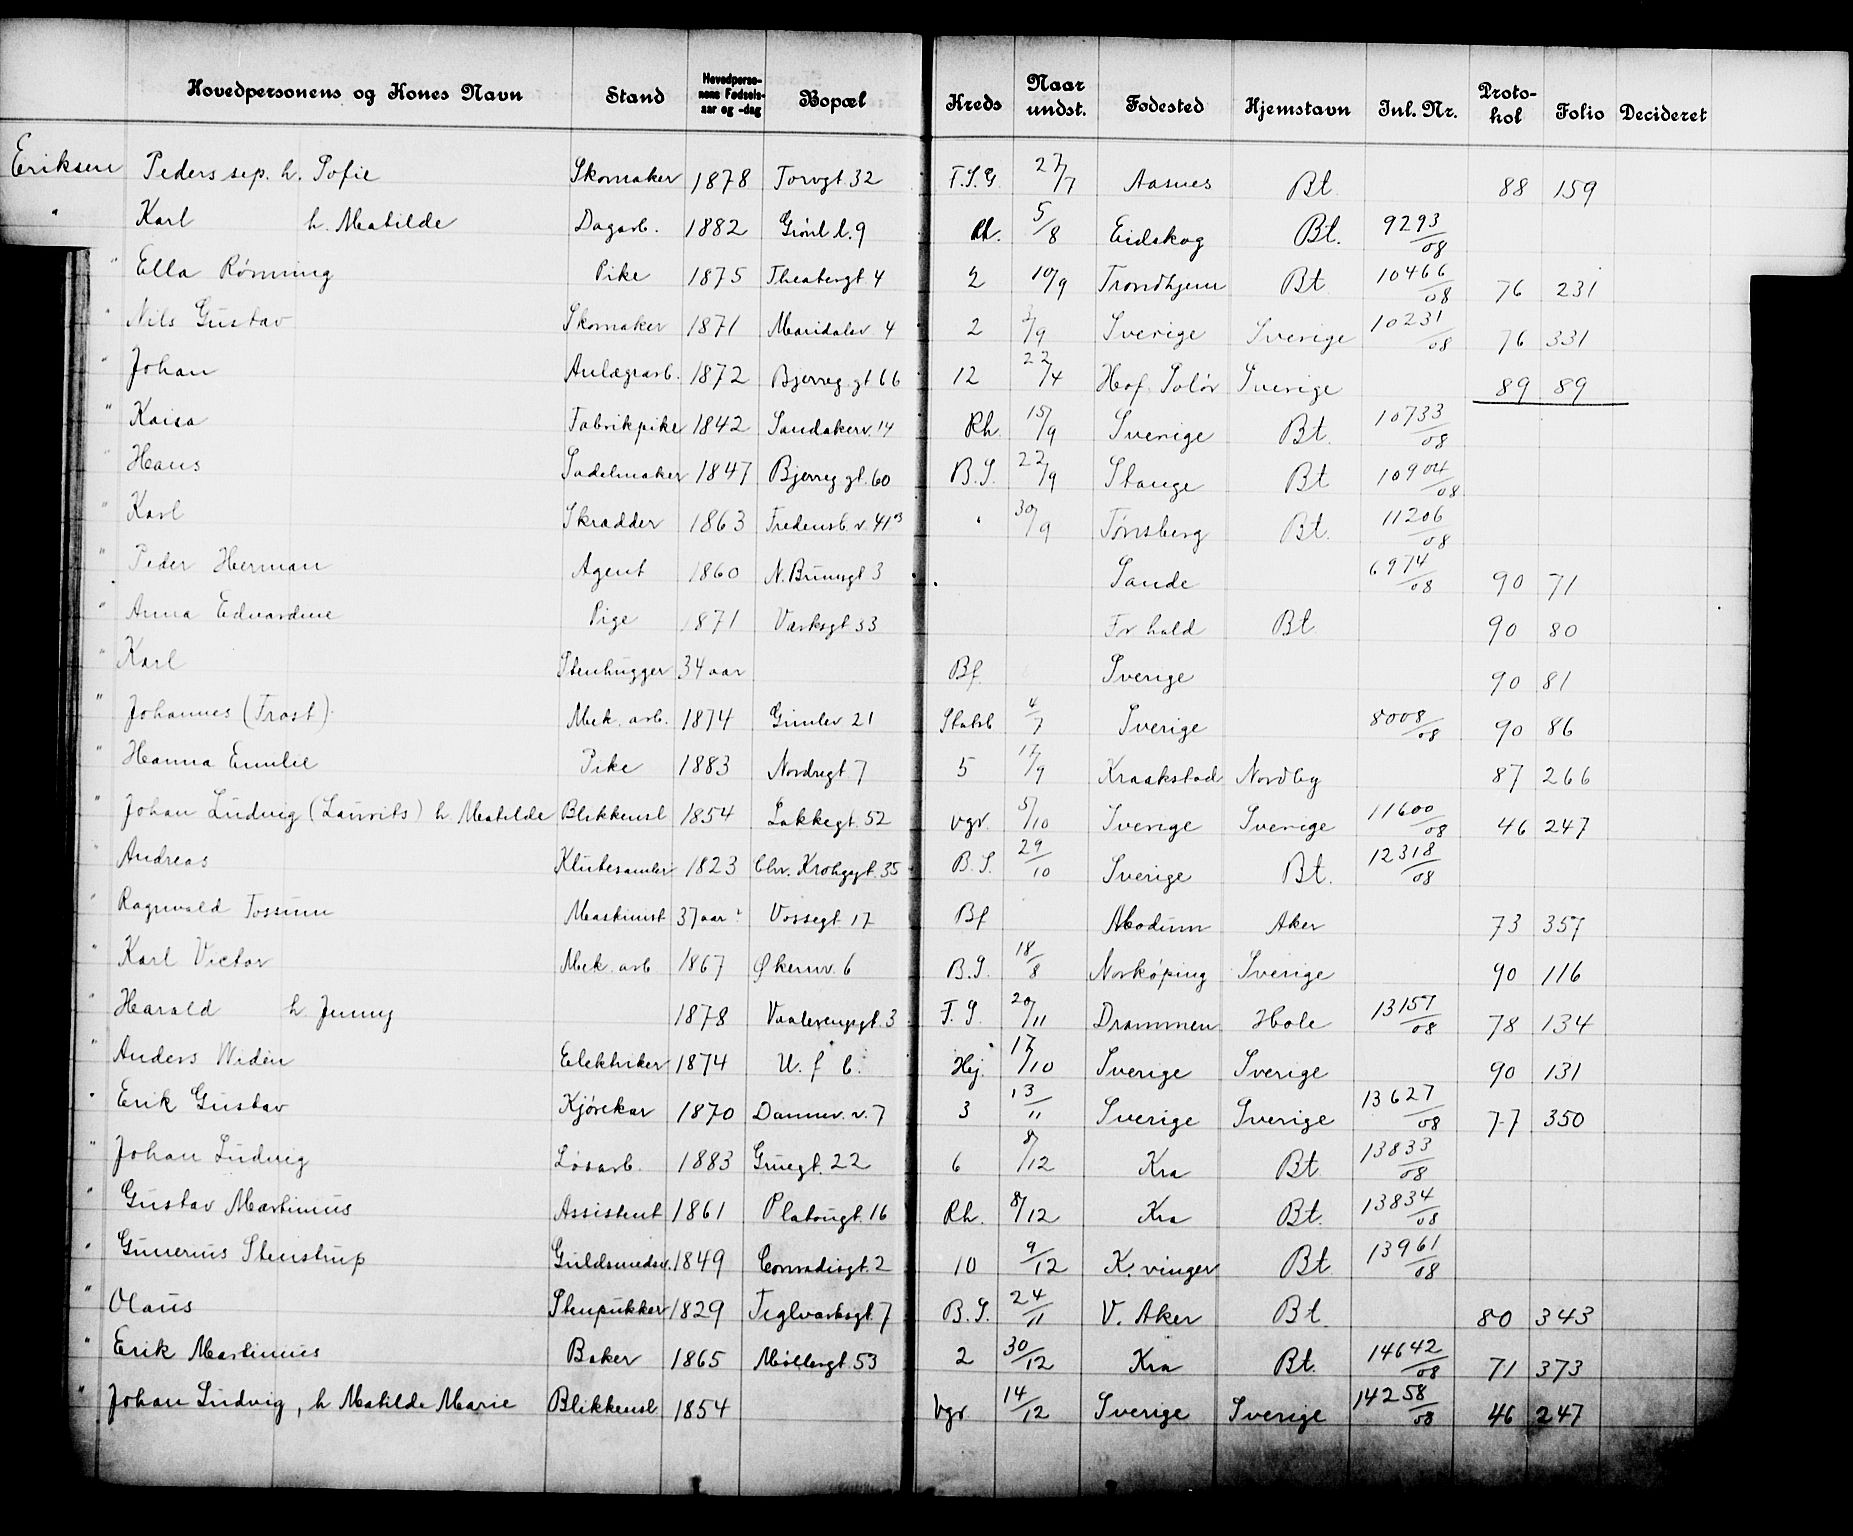 Hovedpersonens og Kones Navn Stand Hovedpersonens Fødsels-aar og -dag Bopæl Kreds Naar undst. Fødested Hjemstavn Inl. Nr. Protokol Folio Decideret
Eriksen Peders sep. h. Sofie Skomaker 1878 Torvgt. 32 F.S.G. 27/7 Aasnes Bt. 88 159
" Karl h. Matilde Dagarb. 1882 Grønl l. 9 Rh. 5/8 Eidskog Bt. 9293/08
" Ella Rønning Pike 1875 Theatergt 4 2 10/9 Trondhjem Bt 10466/08 76 231
" Nils Gustav Skomaker 1871 Maridalsv 4 2 /9 Sverige Sverige 10231/08 76 331
" Johan Anlægsarb. 1872 Bjerreg gt 66 12 22/4 Hof. Solør Sverige 89 89
" Kaisa Fabrikpike 1842 Sandakerv. 14 Rh. 15/9 Sverige Bt. 10733/08
" Hans Sadelmaker 1847 Bjerreg gt. 60 B.S. 22/9 Stange Bt 10904/08
" Karl Skrædder 1863 Fredensb. v. 41 " 30/9 Tønsberg Bt. 11206/08
" Peder Herman Agent 1860 N. Brunsgt 3 Sande 6974/08 90 71
" Anna Edvardine Pige 1871 Værksgt 33 Fr hald Bt 90 80
" Karl Stenhugger 34 aar Bf. Sverige 90 81
" Johannes (Frost) Mek. arb. 1874 Gimlev 21 Statsb 4/7 Sverige 8008/08 90 86
" Hanna Emilie Pike 1883 Nordregt 7 5 17/9 Kraakstad Nordby 87 266
" Johan Ludvig (Laurits) h Matilde Blikkensl 1854 Lakkegt. 52 Vgr 5/10 Sverige Sverige 11600/08 46 247
" Andreas Klutesamler 1823 Chr. Krohgsgt. 35 B.S. 29/10 Sverige Bt. 12318/08
" Ragnvald Fossum Maskinist 37 aar Vossegt 17 Bf Modum Aker 73 357
" Karl Victor Mek. arb 1867 Økernv. 6 B.S. 18/8 Norkøping Sverige 90 116
" Harald h. Jenny 1878 Vaalerenggt. 3 F.S. 20/11 Drammen Hole 13157/08 78 134
" Anders Widén Elektriker 1874 U. f b. Hej. 17/10 Sverige Sverige 90 131
" Erik Gustav Kjørekar 1870 Dannev. v. 7 3 13/11 Sverige Sverige 13627/08 77 350
" Johan Ludvig Løsarb. 1883 Gruegt. 22 6 8/12 Kra Bt. 13833/08
" Gustav Martinius Assistent 1861 Platougt. 16 Rh. 8/12 Kra Bt. 13834/08
" Gunerius Stenstrup Guldsmedsv. 1849 Conradisgt. 2 10 9/12 K. vinger Bt. 13961/08
" Olaus Stenpukker 1829 Teglverksgt. 7 B.S. 24/11 V. Aker Bt. 80 343
" Erik Martinius Baker 1865 Møllergt. 53 2 30/12 Kra Bt. 14642/08 71 373
" Johan Ludvig, h Matilde Marie Blikkensl 1854 Vgr 14/12 Sverige Sverige 14258/08 46 247